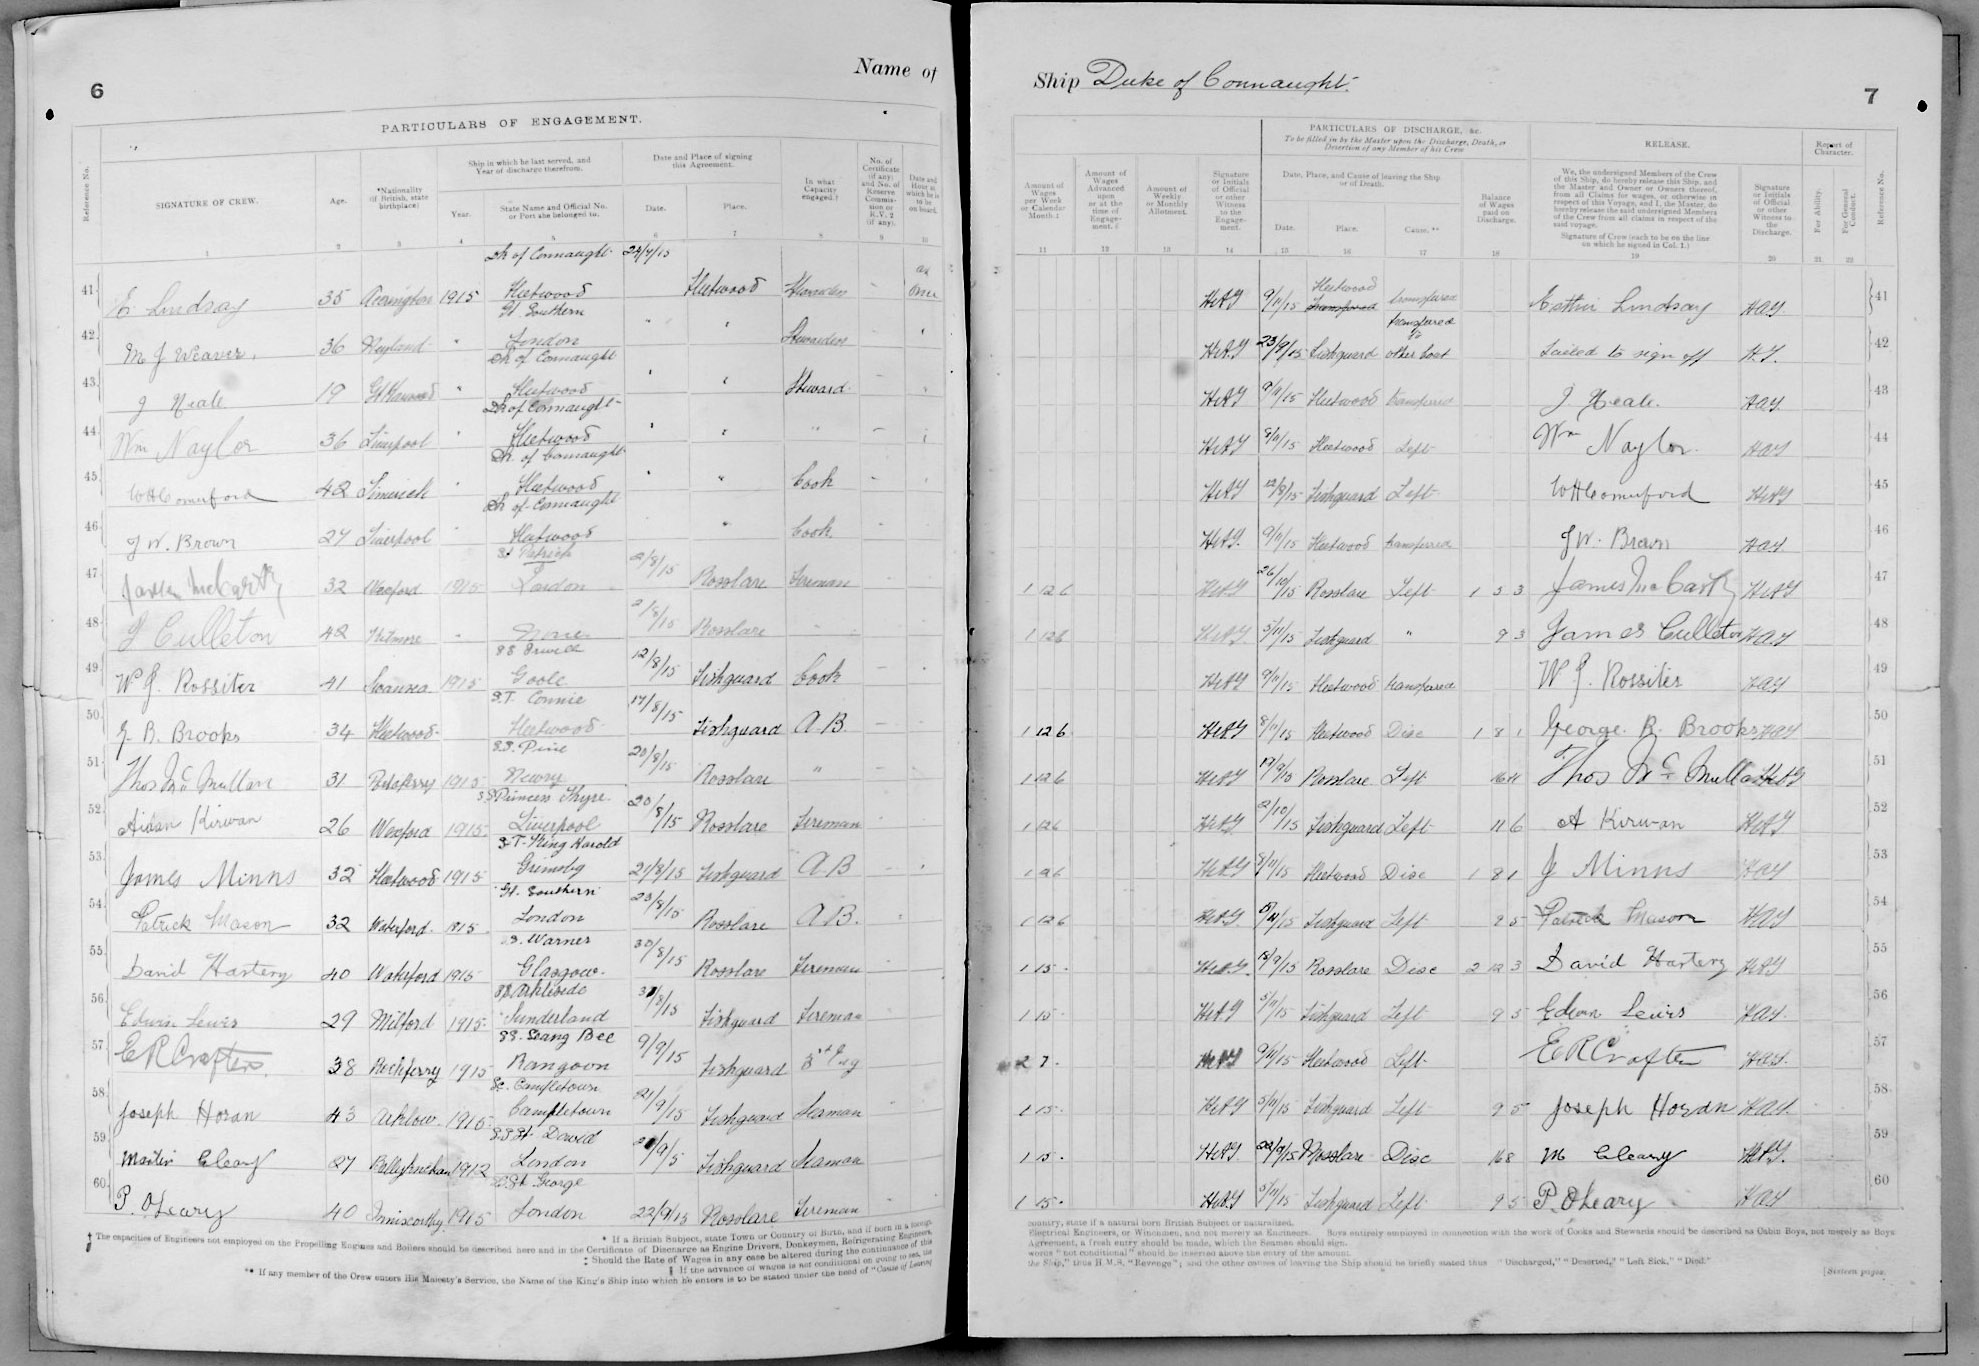 6
Name of
PARTICULARS OF ENGAGEMENT.
Reference No.
SIGNATURE OF CREW.
Age.
*Nationality (if British, state birthplace)
Ship in which he last served, and Year of discharge therefrom.
Year.
State Name and Official No. or Port she belonged to.
Date and Place of signing this Agreement.
Date.
Place.
In what Capacity engaged.†
No. of Certificate (if any) and No. of Reserve Commission or R.V. 2 (if any).
Date and Hour at which he is to be on board.
1 2 3 4 5 6 7 8 10
41 E Lindsay 35 Accrington 1915 Dk of Connaught Fleetwood 24/7/15 Fleetwood Stewardess
42 M J Weaver. 36 Neyland " Gt Southern London " " Stewardess
43 J Neale 19 " Dk of Connaught Fleetwood " " Steward
44 Wm Naylor 36 Liverpool " Dk of Connaught Fleetwood " " "
45 W H Comerford 42 Limerick " Dk. of Connaught Fleetwood " " Cook
46 J W. Brown 27 Liverpool " Dk of Connaught Fleetwood " Cook
47 James McCarthy 32 Wexford 1915 St Patrick London 2/8/15 Rosslare Fireman
48 J Culleton 42 Kilmore - None 2/8/15 Rosslare "
49 W J. Rossiter 41 Swansea 1915 Goole 12/8/15 Fishguard Cook
50 G. R. Brooks 34 Fleetwood S.T. Connie Fleetwood 17/8/15 Fishguard A.B.
51 Thos McMullan 31 1915 S.S. Pine Newry 20/8/15 Rosslare "
52 Aidan Kirwan 26 Wexford 1915 S S Princess Thyre Liverpool 20/8/15 Rosslare Fireman
53 James Minns 32 Fleetwood 1915 S.T. King Harold Grimsby 21/8/15 Fishguard A B
54 Patrick Mason 32 Waterford 1915 Gt. Southern London 23/8/15 Rosslare A.B.
55 David Hartery 40 Waterford 1915 S.S. Warner Glasgow 30/8/15 Rosslare Fireman
56 Edwin Lewis 29 Milford 1915 Sunderland 31/8/15 Fishguard Fireman
57 E R Crofter 38 Rockferry 1915 SS. Seang Bee Rangoon 9/9/15 Fishguard
58 Joseph Horan 43 Arklow 1915 Campletown Campletown 21/9/15 Fishguard Seaman
59 Martin Cleary 27 1912 S.S. St David London Fishguard Seaman
60 P. O'Leary 40 Enniscorthy 1915 St George London 22/9/15 Rosslare Fireman
* If a British Subject, state Town or Country of Birth, and if born in a foreign
† The capacities of Engineers not employed on the Propelling Engines and Boilers should be described here and in the Certificate of Discharge as Engine Drivers, Donkeymen, Refrigerating Engineers,
‡ Should the Rate of Wages in any case be altered during the continuance of this
§ If the advance of wages is not conditional on going to sea, the
** If any member of the Crew enters His Majesty's Service, the Name of the King's Ship into which he enters is to be stated under the head of "Cause of Leaving
Ship Duke of Connaught.
7
PARTICULARS OF DISCHARGE, &c.
To be filled in by the Master upon the Discharge, Death, or Desertion of any Member of his Crew
RELEASE.
Report of Character.
Amount of Wages per Week or Calendar Month.‡
Amount of Wages Advanced upon or at the time of Engagement.§
Amount of Weekly or Monthly Allotment.
Signature or Initials of Official or other Witness to the Engagement.
Date, Place, and Cause of leaving the Ship or of Death.
Date.
Place.
Cause.**
Balance of Wages paid on Discharge.
We, the undersigned Members of the Crew of this Ship, do hereby release this Ship, and the Master and Owner or Owners thereof, from all Claims for wages, or otherwise in respect of this Voyage, and I, the Master, do hereby release the said undersigned Members of the Crew from all claims in respect of the said voyage.
Signature of Crew (each to be on the line on which he signed in Col. 1.)
Signature or Initials of Official or other Witness to the Discharge.
For Ability.
For General Conduct.
Reference No.
11 12 13 14 15 16 17 18 19 20 21 22
9/11/15 Fleetwood Transferred transferred Lindsay 41
23/9/15 Fishguard transferred to other boat Failed to sign off 42
9/11/15 Fleetwood transferred J Neale. 43
8/11/15 Fleetwood Left Wm Naylor. 44
Fishguard Left W H Comerford 45
9/11/15 Fleetwood transferred J W. Brown 46
1 12 6 26/10/15 Rosslare Left 1 5 3 James McCarthy 47
1 12 6 5/11/15 Fishguard " 9 3 James Culleton 48
9/11/15 Fleetwood transferred W J. Rossiter 49
1 12 6 8/11/15 Fleetwood Disc 1 8 1 George. R. Brooks 50
1 12 6 Rosslare Left Thos McMullan 51
1 12 6 2/10/15 Fishguard Left 11 6 A Kirwan 52
8/11/15 Fleetwood Disc 1 8 1 J Minns 53
1 12 6 Fishguard Left 9 5 Patrick Mason 54
1 15 - Rosslare Disc 2 12 3 David Hartery 55
1 15 - 5/11/15 Fishguard Left 9 5 Edwin Lewis 56
2 7 - 9/11/15 Fleetwood Left E R Crofter 57
1 15 - 5/11/15 Fishguard Left 9 5 Joseph Horan 58
1 15 - Rosslare Disc 16 8 M Cleary 59
1 15 - 5/11/15 Fishguard Left 9 5 P. O'Leary 60
country, state if a natural born British Subject or naturalised.
Electrical Engineers, or Winchmen, and not merely as Engineers. Boys entirely employed in connection with the work of Cooks and Stewards should be described as Cabin Boys, not merely as Boys.
Agreement, a fresh entry should be made, which the Seamen should sign.
words "not conditional" should be inserted above the entry of the amount.
the Ship," thus H.M.S. "Revenge"; and the other causes of leaving the Ship should be briefly stated thus "Discharged," "Deserted," "Left Sick," "Died."
[Sixteen pages.